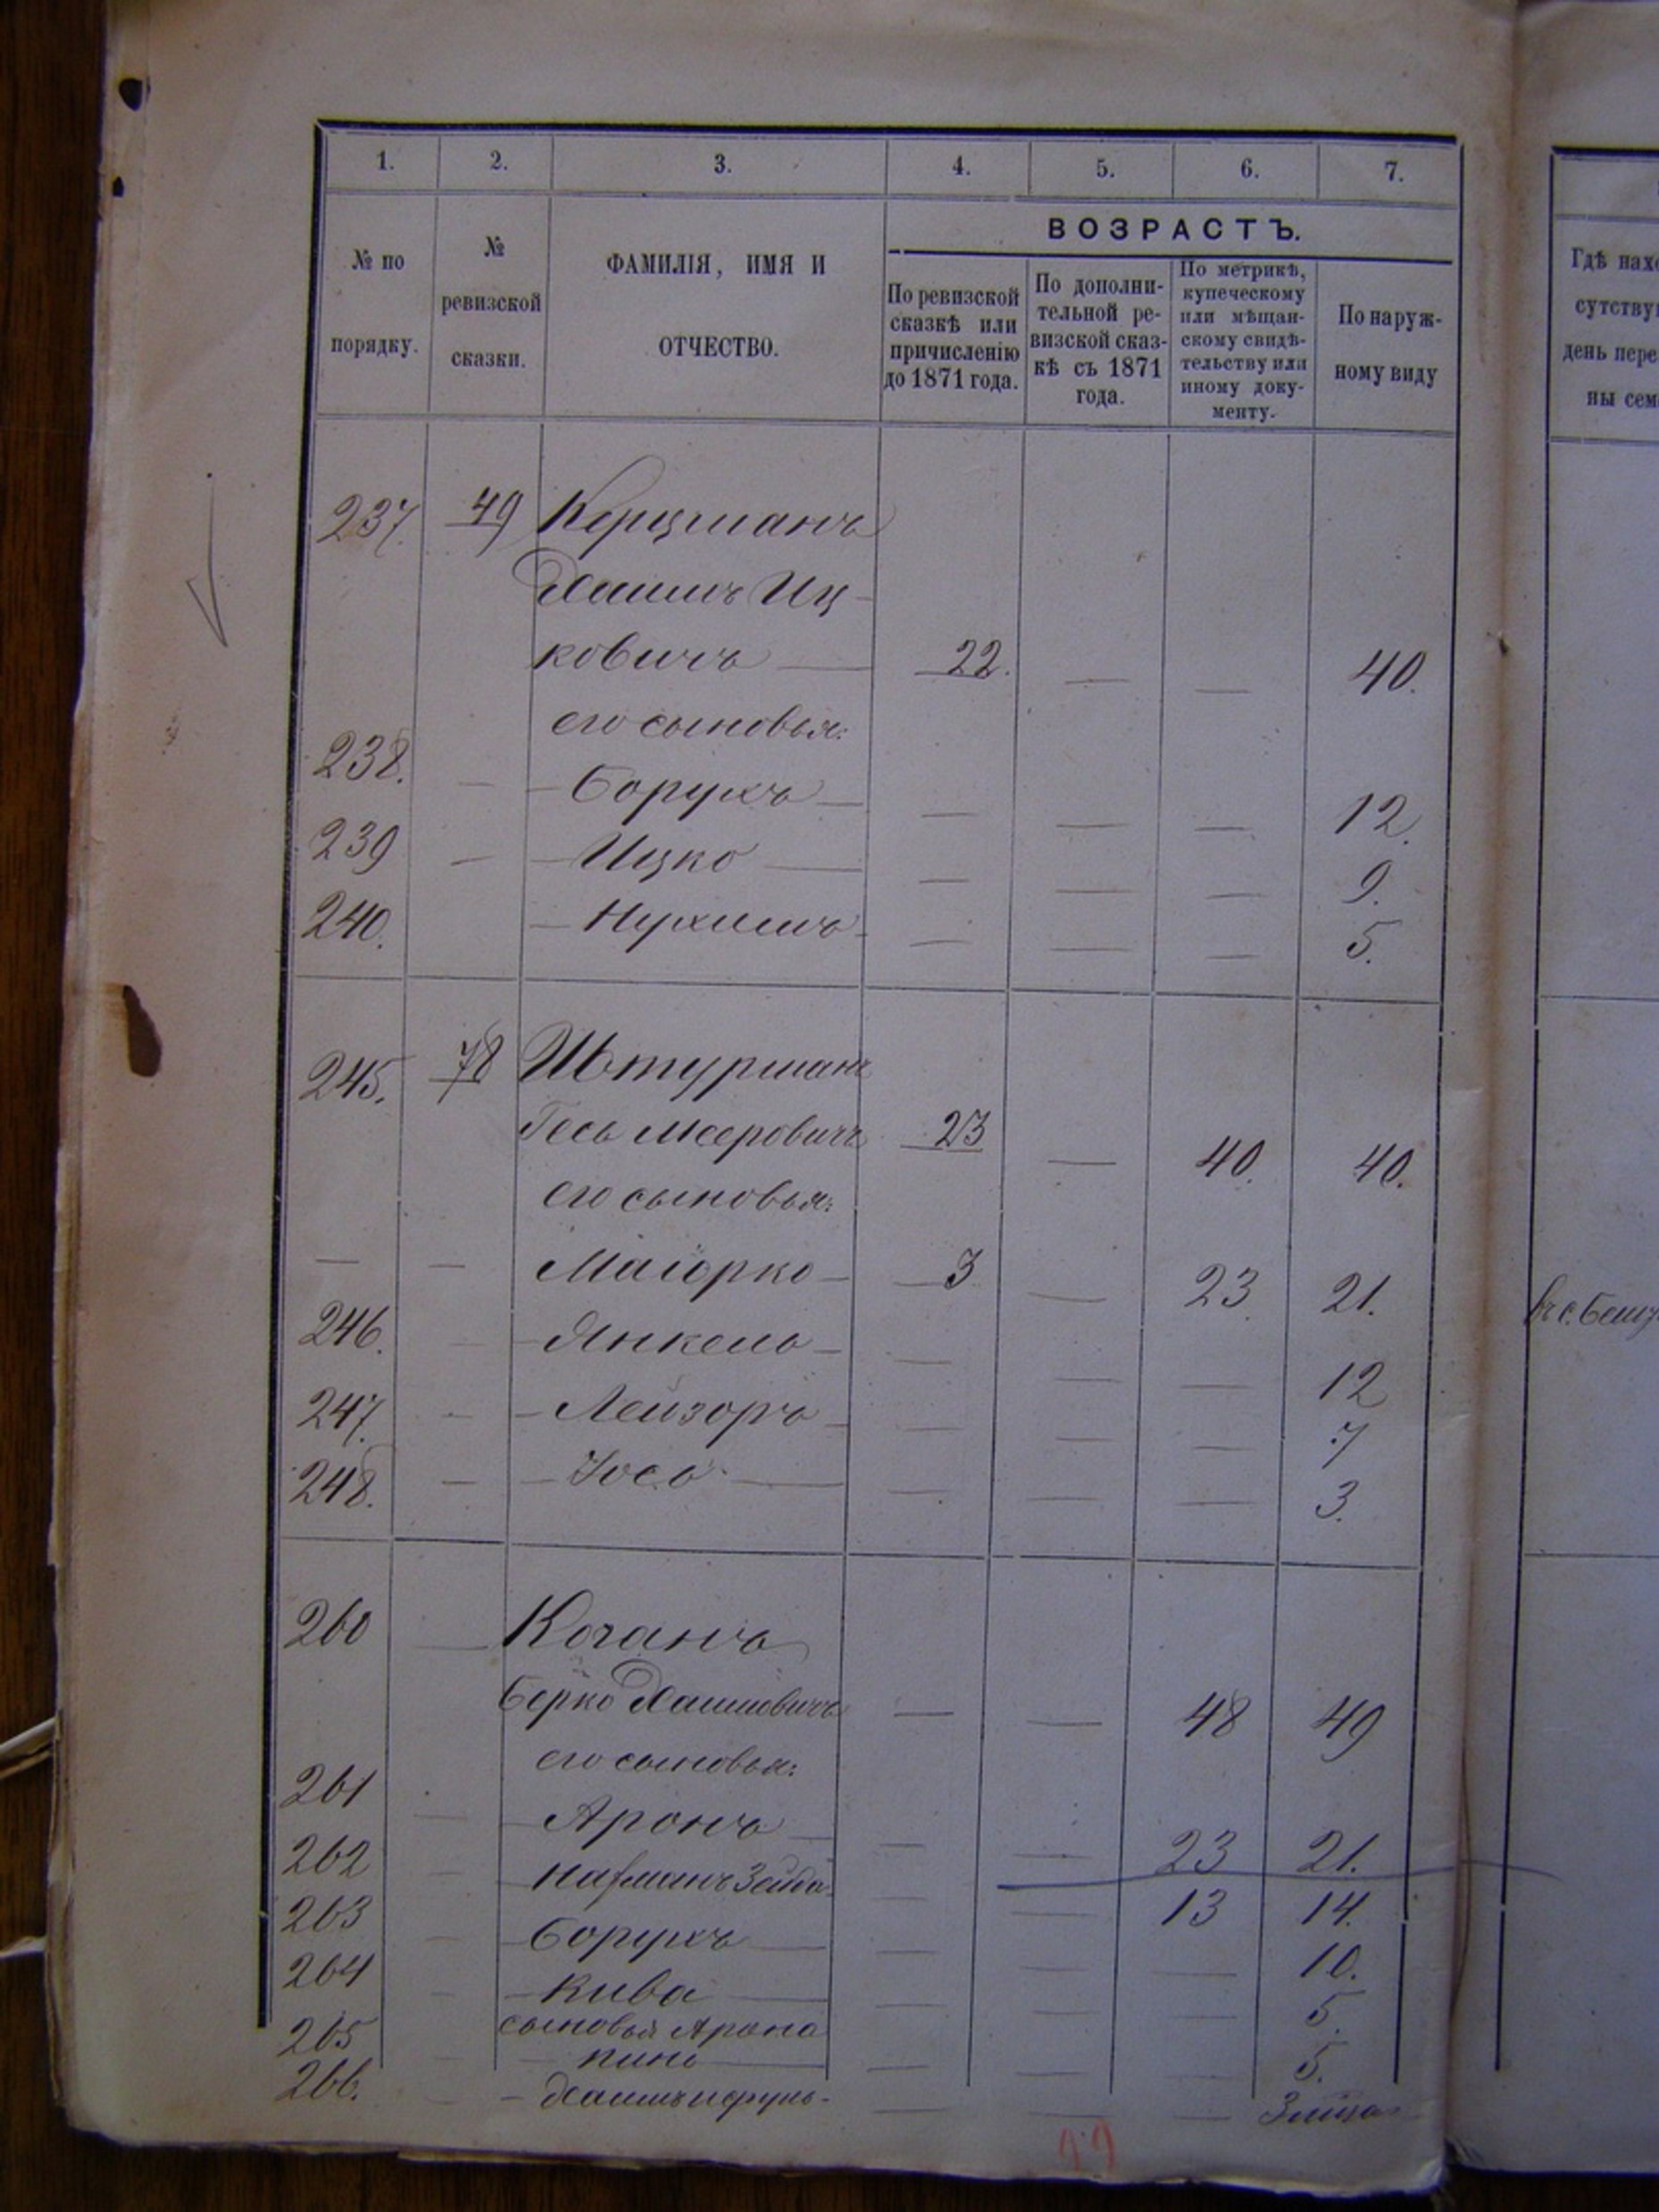 1. 2. 3. 4. 5. 6. 7.
№ по порядку.
№ ревизской сказки.
ФАМИЛІЯ, ИМЯ И ОТЧЕСТВО.
ВОЗРАСТЪ.
По ревизской сказкѣ или причисленію до 1871 года.
По дополни-тельной ре-визской сказ-кѣ съ 1871 года.
По метрикѣ, купеческому или мѣщан-скому свидѣ-тельству или иному доку-менту.
По наруж-ному виду
Гдѣ нах
сутству
день пере
ны сем
237. 49 Керцманъ
Хаимъ Иц-
ковичъ — 22. — — 40.
его сыновья:
238. — — Борухъ — — — — 12.
239 — — Ицко — — — — 9.
240. — Нухимъ — — — — 5.
245. 78 Штурман
Гесь Мееровичъ 23 — 40. 40.
его сыновья:
— — Маіорко — 3 — 23. 21.
246. — — Янкель — — — — 12
247. — — Лейзоръ — — — — 7
248. — — Іось — — — — 3.
въ с.
260 — Коганъ
Берко Хаимовичъ — — 48 49
его сыновья:
261 — — Аронъ — — — 23 21.
262 — — Нафманъ Зейда — — 13 14.
263 — — Борухъ — — — — 10.
264 — — Кива — — — — 5.
сыновья Арона
265 — — Пинь — — — — 5.
266. — — Хаимъ — — —
99